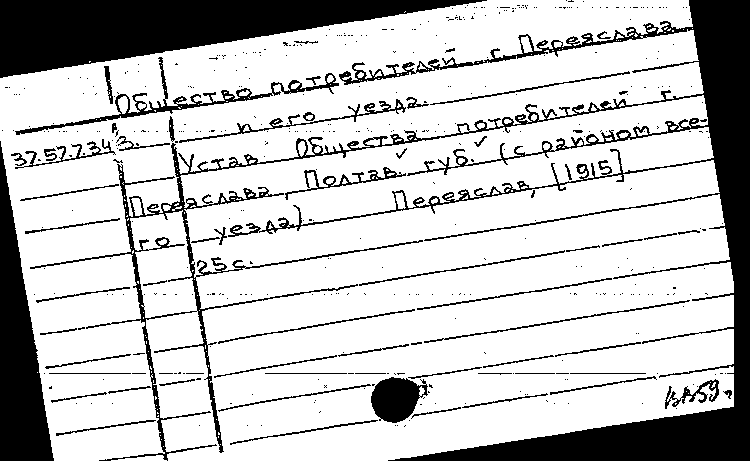 Общество потребителей г. Переяслава
и его уезда.
37.57.7.343.
Устав Общества потребителей г.
Переяслава, Полтав. губ. (с районом все-
го уезда). Переяслав, [1915].
25 с.